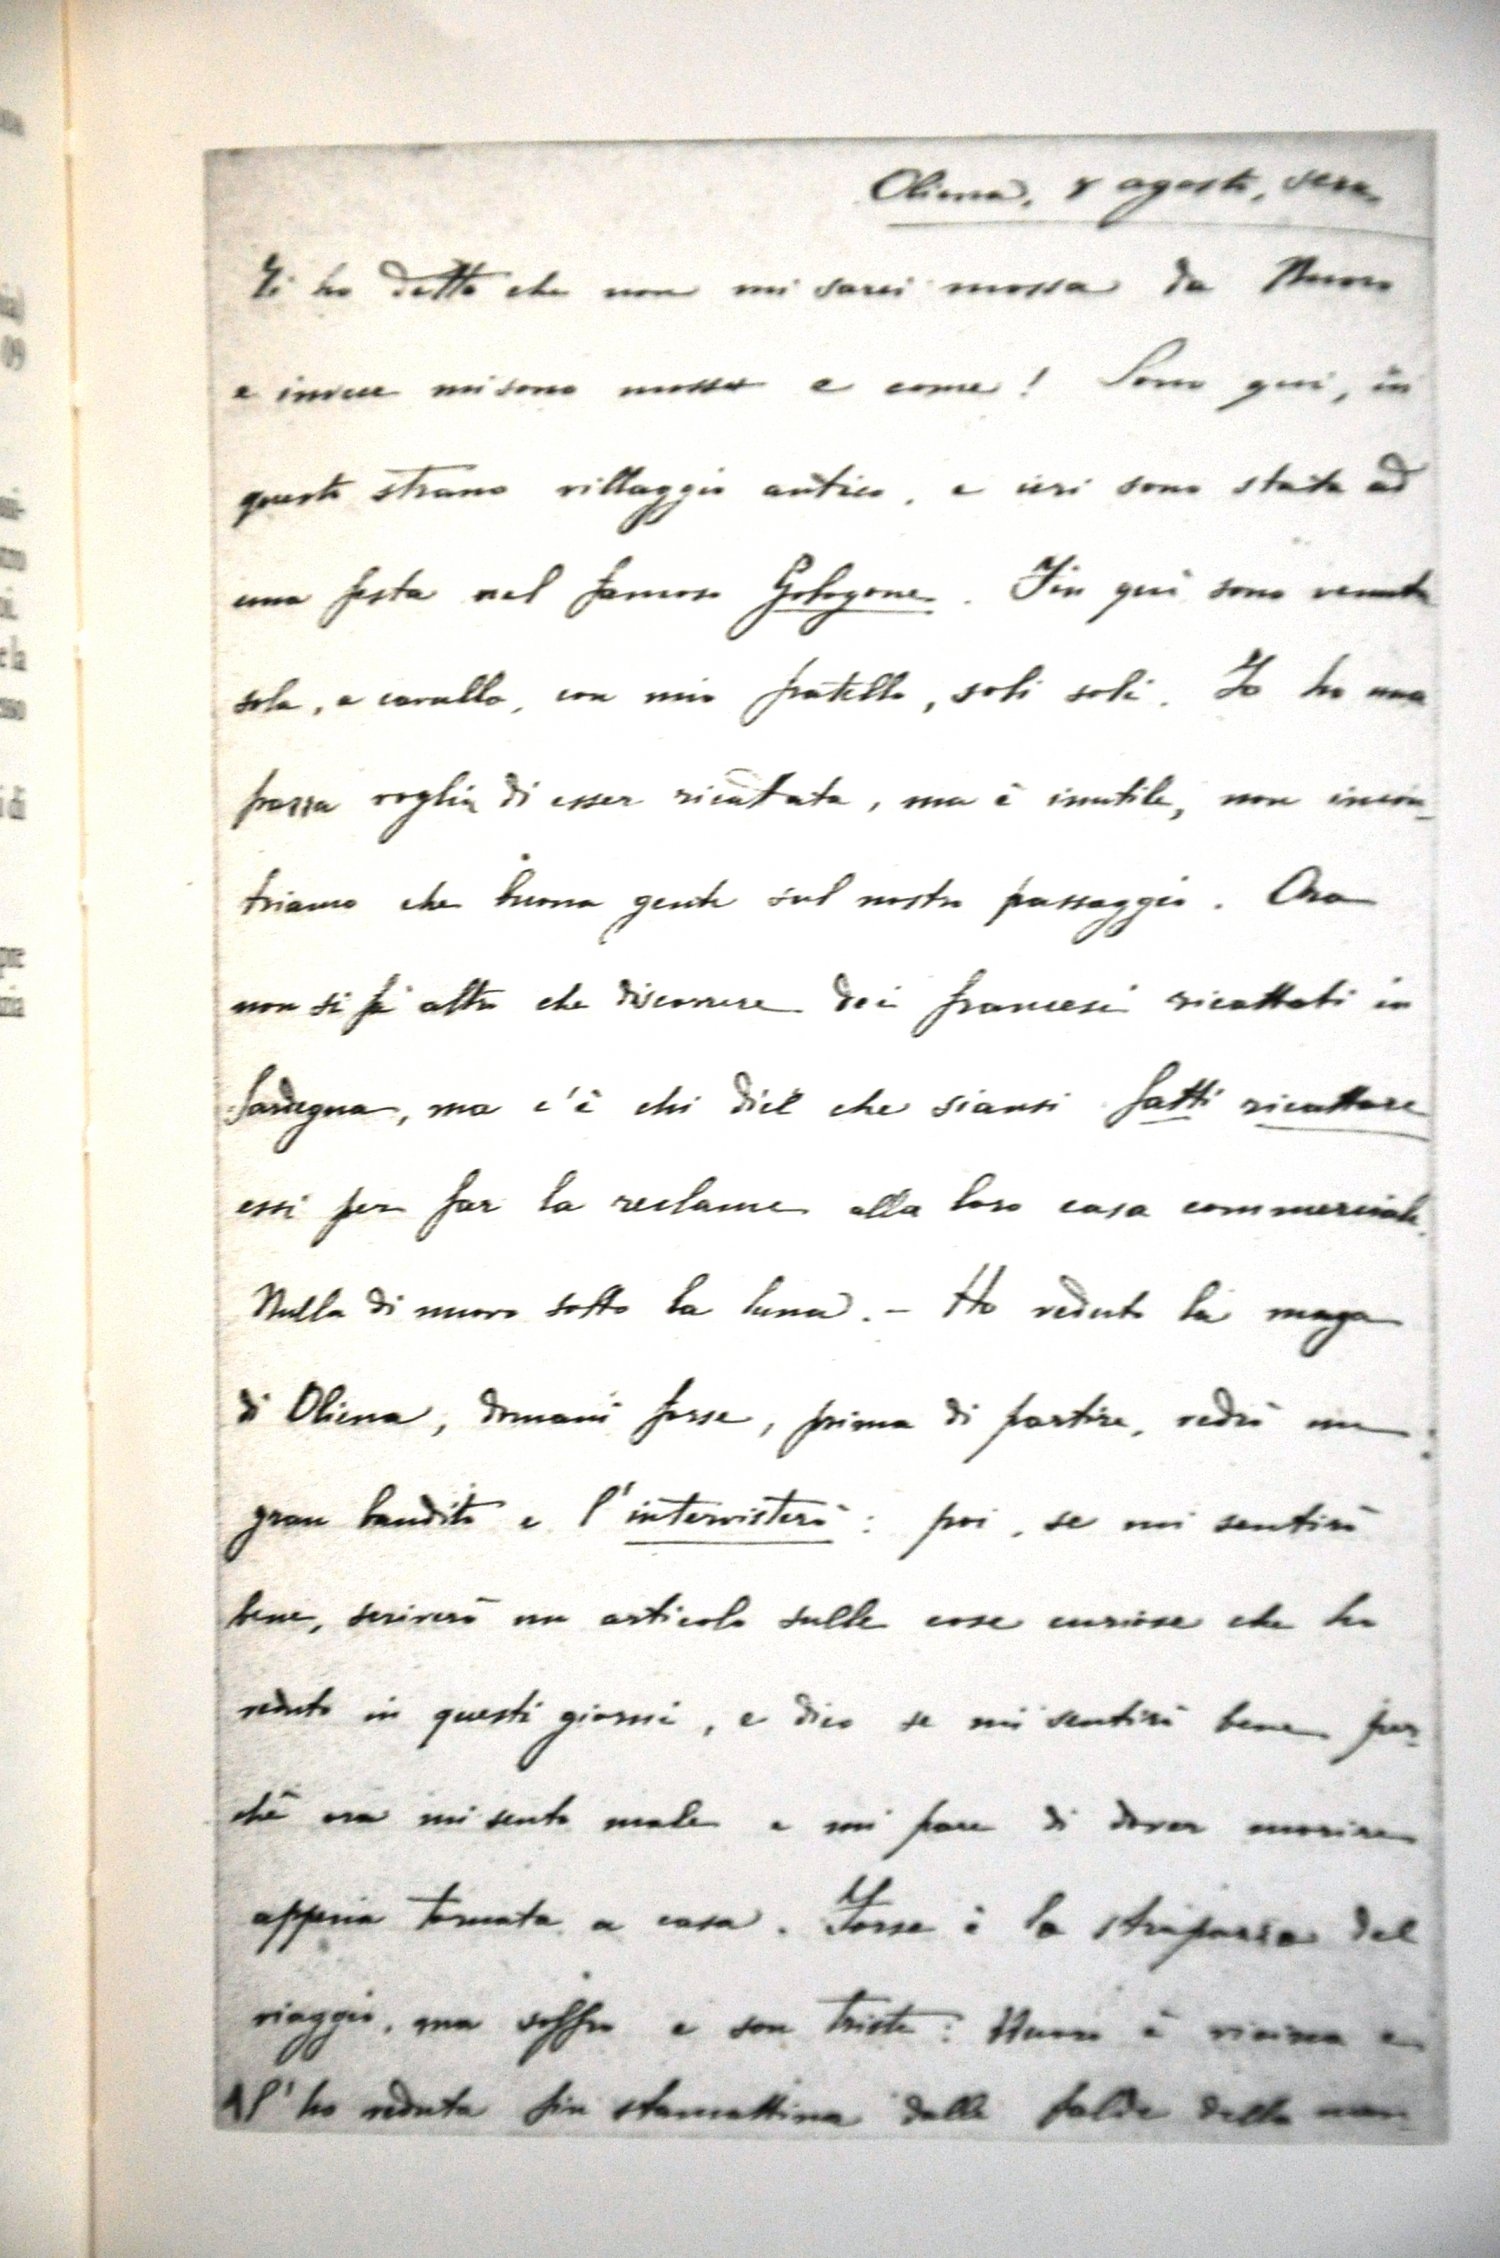 Oliena, 8 agosto, sera.
Ti ho detto che non mi sarei mossa da Nuoro
e invece mi sono mossa e come! Sono qui, in
questo strano villaggio antico, e ieri sono stata ad
una festa nel famoso Gologone. Fin qui sono venuta
sola, a cavallo, con mio fratello, soli soli. Io ho una
pazza voglia di esser ricattata, ma è inutile, non incon-
triamo che buona gente sul nostro passaggio. Ora
non si fa altro che discorrere dei francesi ricattati in
Sardegna, ma c'è chi dice che siansi fatti ricattare
essi per far la reclame alla loro casa commerciale.
Nulla di nuovo sotto la luna. – Ho veduto la maga
di Oliena, domani forse, prima di partire, vedrò un
gran bandito e l'intervisterò: poi, se mi sentirò
bene, scriverò un articolo sulle cose curiose che ho
veduto in questi giorni, e dico se mi sentirò bene per-
chè ora mi sento male e mi pare di dover morire
appena tornata a casa. Forse è la strapazza del
viaggio, ma soffro e son triste: Nuoro è vicina e
l'ho veduta fin stamattina dalle falde della mon-